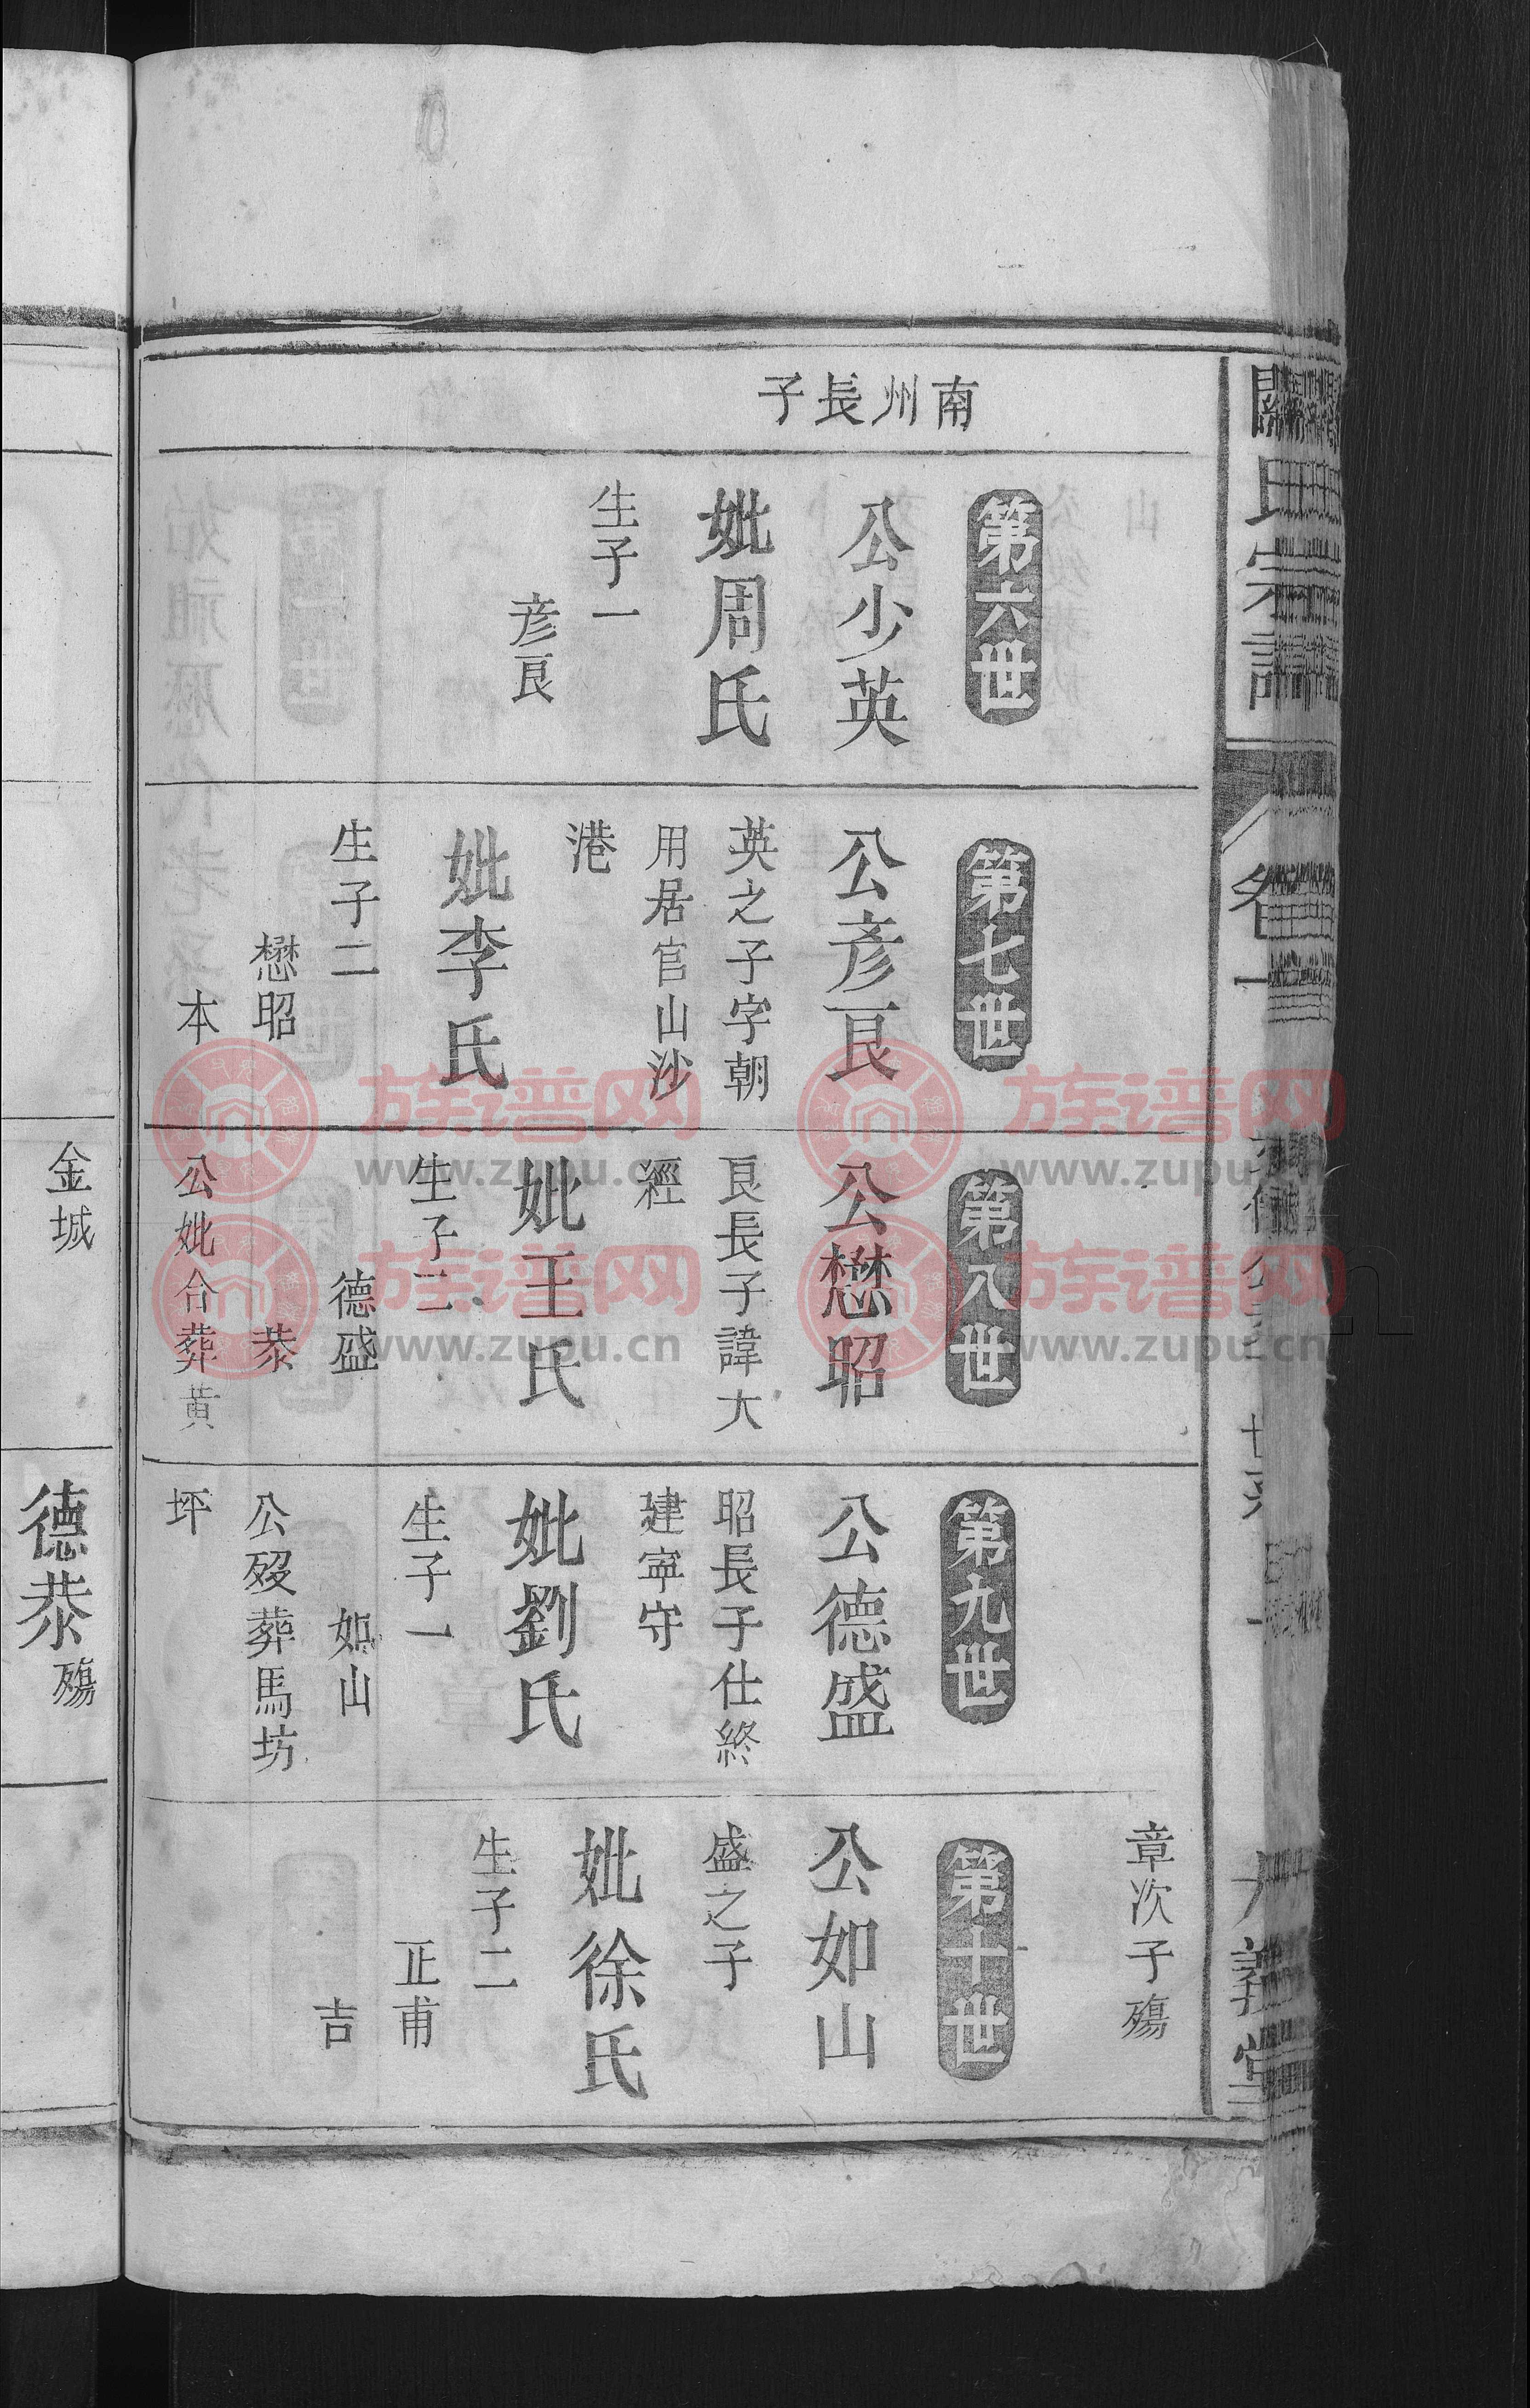 南州長子
第六世
公少英
妣周氏
生子一
彥良
第七世
公彥良
英之子字朝
用居官山沙
港
妣李氏
生子二
懋昭
本
第八世
公懋昭
良長子諱大
經
妣王氏
生子二
德盛
恭
公妣合葬黄
坪
第九世
公德盛
昭長子仕終
建寧守
妣劉氏
生子一
如山
公歿葬馬坊
章次子殤
第十世
公如山
盛之子
妣徐氏
生子二
正甫
吉
金城
德恭殤
族谱网
www.zupu.cn
族谱网
www.zupu.cn
族谱网
www.zupu.cn
族谱网
www.zupu.cn